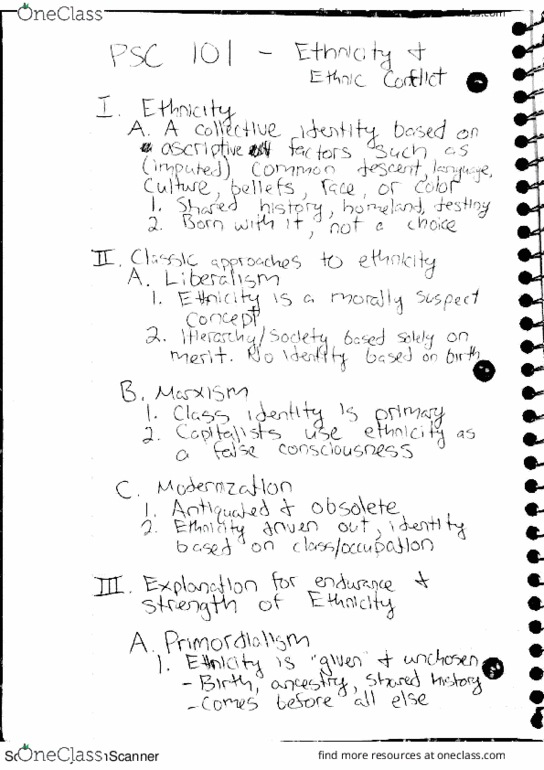 OneClass
find more resources at oneclass.com
PSC 101 - Ethnicity +
Ethnic Conflict
I. Ethnicity
A. A collective identity based on
ascriptive factors such as
(imputed) common descent, language,
culture, beliefs, race, or color
1. Shared history, homeland, destiny
2. Born with it, not a choice
II. Classic approaches to ethnicity
A. Liberalism
1. Ethnicity is a morally suspect
concept
2. Hierarchy/Society based solely on
merit. No identity based on birth
B. Marxism
1. Class identity is primary
2. Capitalists use ethnicity as
a false consciousness
C. Modernization
1. Antiquated + obsolete
2. Ethnicity driven out, identity
based on class/occupation
III. Explanation for endurance +
strength of Ethnicity
A. Primordialism
1. Ethnicity is "given" + unchosen
- Birth, ancestry, shared history
- Comes before all else
OneClass Scanner
find more resources at oneclass.com